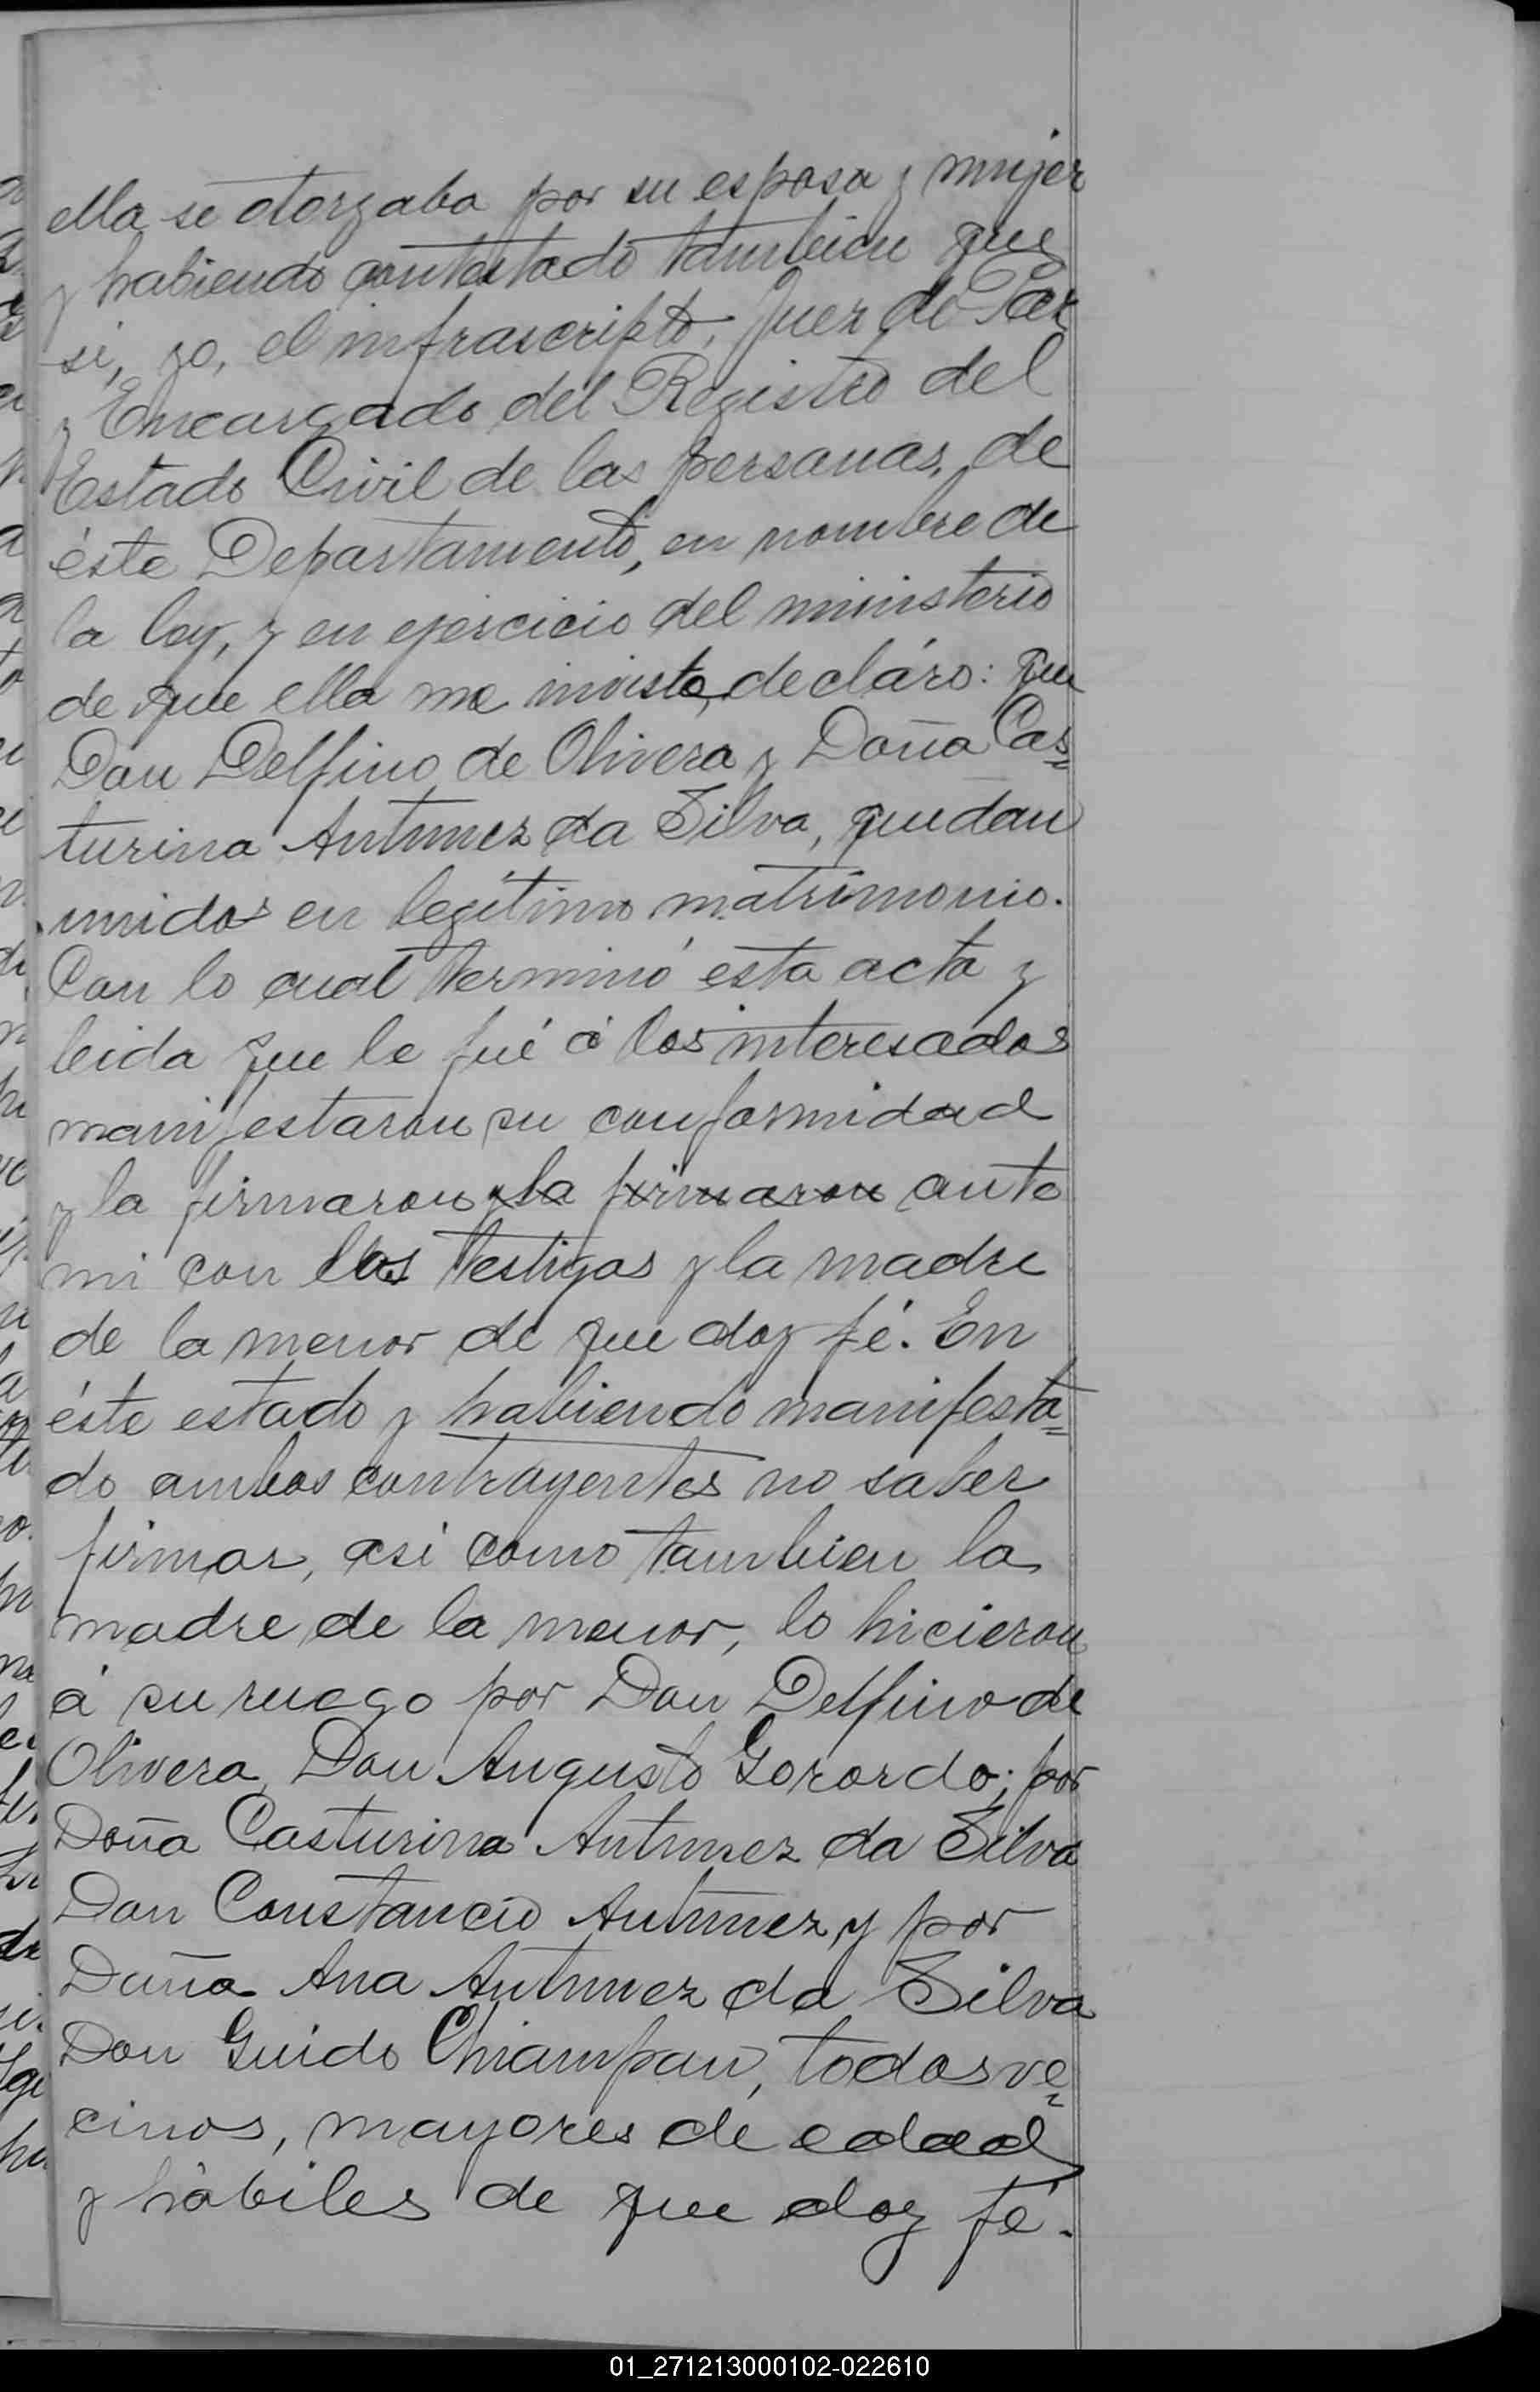 ella se otorgaba por su esposa y mujer
y habiendo contestado tambien que
si, yo, el infrascripto, Juez de Paz
y Encargado del Registro del
Estado Civil de las personas, de
éste Departamento, en nombre de
la ley, y en ejercicio del ministerio
de que ella me inviste, decláro: que
Don Delfino de Olivera y Doña Cas=
turina Antunez da Silva, quedan
unidos en legítimo matrimonio.
Con lo cual terminó esta acta y
leida que le fué á los interesados
manifestaron su conformidad
y la firmaron y la firmaron ante
mi con los testigos y la madre
de la menor de que doy fé. En
éste estado y habiendo manifesta=
do ambos contrayentes no saber
firmar, asi como tambien la
madre de la menor, lo hicieron
á su ruego por Don Delfino de
Olivera, Don Augusto Gorordo; por
Doña Casturina Antunez da Silva
Don Constancio Antunez y por
Doña Ana Antunez da Silva
Don Guido Chiampan, todos ve=
cinos, mayores de edad
y hábiles de que doy fé.
01_271213000102-022610